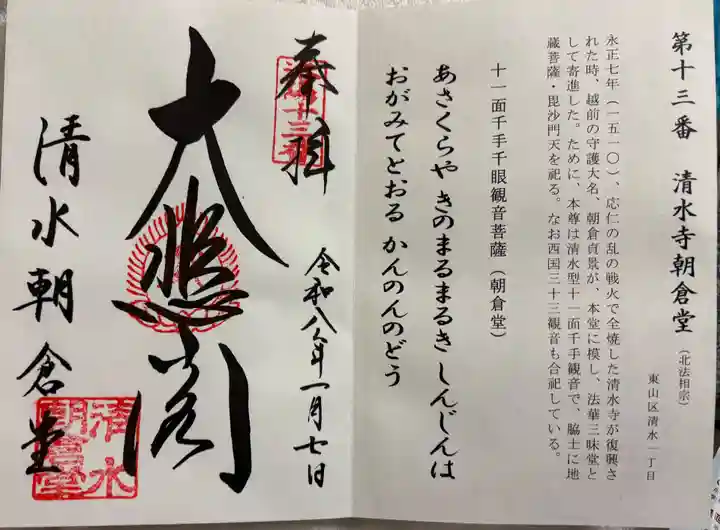 第十三番 清水寺朝倉堂（北法相宗）
東山区清水一丁目
永正七年（一五一〇）、応仁の乱の戦火で全焼した清水寺が復興さ
れた時、越前の守護大名、朝倉貞景が、本堂に模し、法華三昧堂と
して寄進した。ために、本尊は清水型十一面千手観音で、脇士に地
蔵菩薩・毘沙門天を祀る。なお西国三十三観音も合祀している。
十一面千手千眼観音菩薩（朝倉堂）
あさくらや きのまるまるき しんじんは
おがみてとおる かんのんのどう
奉拝
十三番
令和八年一月七日
大悲閣
清水朝倉堂
清水
朝倉堂